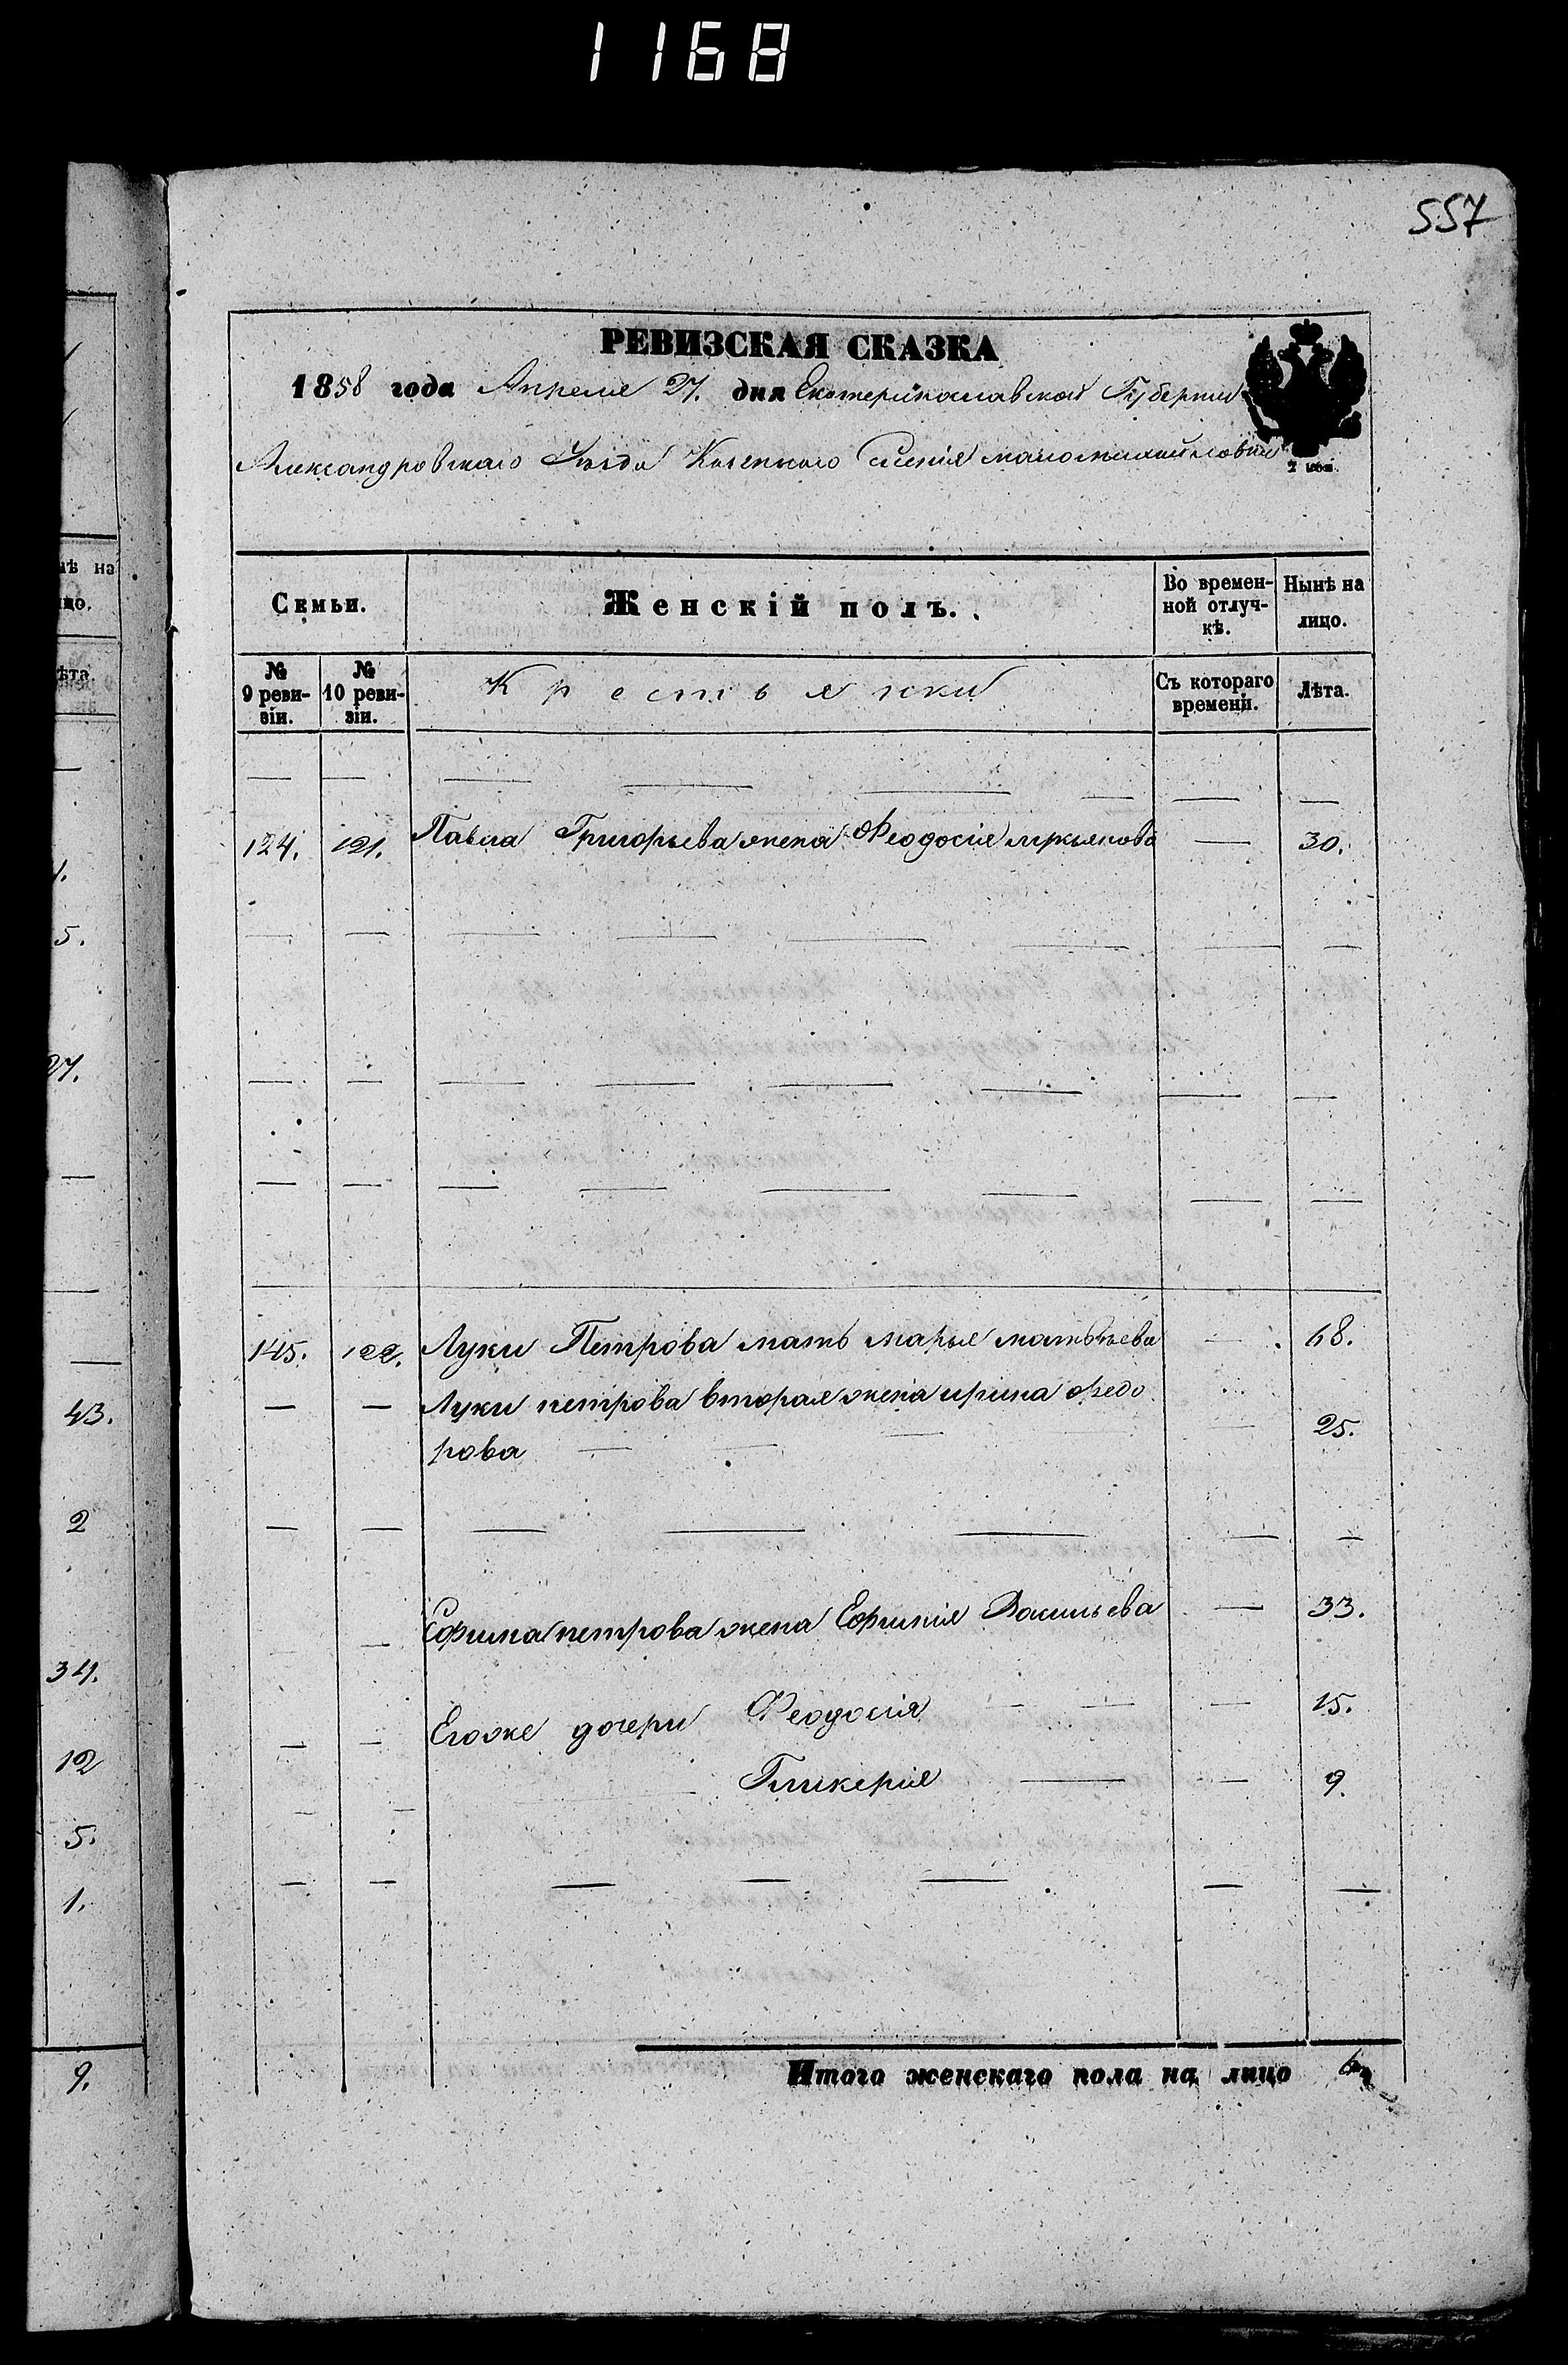 1168
557
РЕВИЗСКАЯ СКАЗКА
1858 года Апреля 27. дня Екатеринославской Губернии
Александровскаго Уезда Казеннаго селенія маломихайловки
2 коп.
Семьи. Женскій полъ. Во времен- Нынѣ на
ной отлуч- лицо.
кѣ.
№ № Крестьянки Съ котораго Лѣта.
9 реви- 10 реви- времени.
зіи. зіи.
124. 121. Павла Григорьева жена Феодосія лукьянова — 30.
145. 122. Луки Петрова мать марья матвѣева — 68.
— — Луки петрова вторая жена ирина федо
рова — 25.
Ефима петрова жена Ефимія Васильева — 33.
— — Егоже дочери Феодосія — 15.
Гликерія — 9.
Итого женскаго пола на лицо 6
нѣ на
цо.
ѣта.
5.
27.
43.
2
34.
12
5.
1.
9.